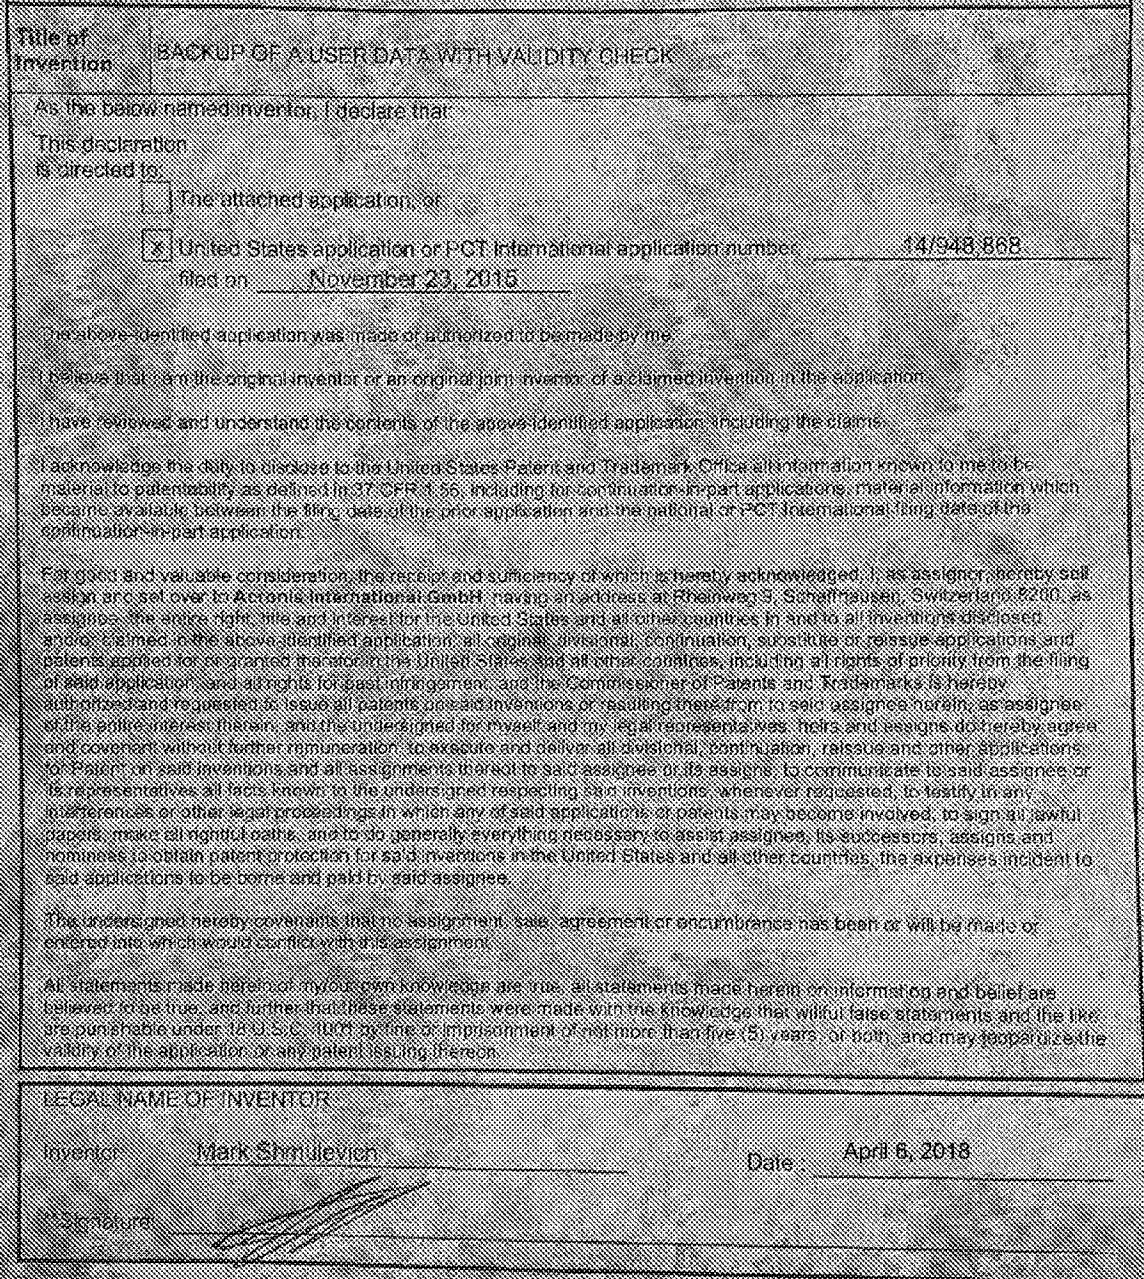 Title of
Invention
BACKUP OF A USER DATA WITH VALIDITY CHECK
As the below named inventor, I declare that:
This declaration
is directed to:
The attached application, or
X United States application or PCT International application number 14/948,868
filed on November 23, 2015
The above-identified application was made or authorized to be made by me.
I believe that I am the original inventor or an original joint inventor of a claimed invention in the application.
I have reviewed and understand the contents of the above-identified application, including the claims.
I acknowledge the duty to disclose to the United States Patent and Trademark Office all information known to me to be
material to patentability as defined in 37 CFR 1.56, including for continuation-in-part applications, material information which
became available between the filing date of the prior application and the national or PCT International filing date of the
continuation-in-part application.
For good and valuable consideration, the receipt and sufficiency of which is hereby acknowledged, I, as assignor, hereby sell
assign and set over to Acronis International GmbH, having an address at Rheinweg 9, Schaffhausen, Switzerland 8200, as
assignee, the entire right, title and interest for the United States and all other countries in and to all inventions disclosed
and/or claimed in the above-identified application, all original, divisional, continuation, substitute or reissue applications and
patents applied for or granted therefor in the United States and all other countries, including all rights of priority from the filing
of said application, and all rights for past infringement, and the Commissioner of Patents and Trademarks is hereby
authorized and requested to issue all patents on said inventions or resulting therefrom to said assignee herein, as assignee
of the entire interest therein, and the undersigned for myself and my legal representatives, heirs and assigns do hereby agree
and covenant without further remuneration, to execute and deliver all divisional, continuation, reissue and other applications
for Patent on said inventions and all assignments thereof to said assignee or its assigns, to communicate to said assignee or
its representatives all facts known to the undersigned respecting said inventions, whenever requested, to testify in any
interferences or other legal proceedings in which any of said applications or patents may become involved, to sign all lawful
papers, make all rightful oaths, and to do generally everything necessary to assist assignee, its successors, assigns and
nominees to obtain patent protection for said inventions in the United States and all other countries, the expenses incident to
said applications to be borne and paid by said assignee.
The undersigned hereby covenants that no assignment, sale, agreement or encumbrance has been or will be made or
entered into which would conflict with this assignment.
All statements made herein of my/our own knowledge are true, all statements made herein on information and belief are
believed to be true, and further that these statements were made with the knowledge that willful false statements and the like
are punishable under 18 U.S.C. 1001 by fine or imprisonment of not more than five (5) years, or both, and may jeopardize the
validity of the application or any patent issuing thereon.
LEGAL NAME OF INVENTOR
Inventor: Mark Shmulevich Date : April 6, 2018
Signature: